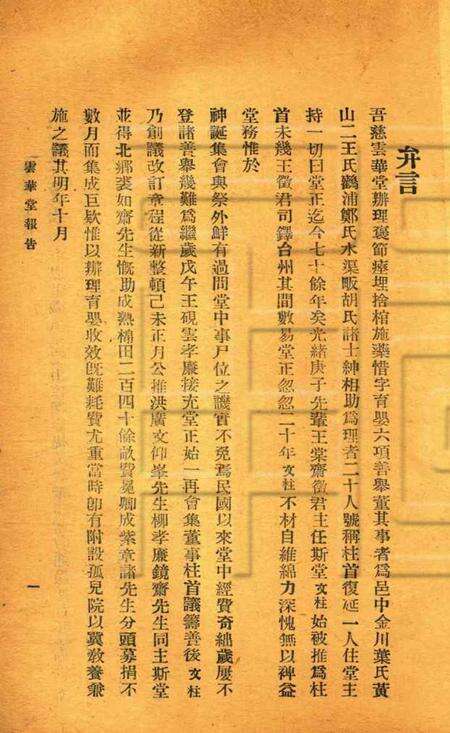 弁言
吾慈雲華堂辦理褒節瘞埋捨棺施藥惜字育嬰六項善舉董其事者爲邑中金川葉氏黃
山二王氏鸛浦鄭氏水渠畈胡氏諸士紳相助爲理者二十人號稱柱首復延一人住堂主
持一切曰堂正迄今七十餘年矣光緒庚子先輩王棠齋徵君主任斯堂文柱始被推爲柱
首未幾王徵君司鐸台州其間數易堂正忽忽二十年文柱不材自維綿力深愧無以裨益
堂務惟於
神誕集會與祭外鮮有過問堂中事尸位之譏實不免焉民國以來堂中經費奇絀歲屢不
登諸善舉幾難爲繼歲戊午王硯雲孝廉接充堂正始一再會集董事柱首議籌善後文柱
乃創議改訂章程從新整頓己未正月公推洪廣文仰峯先生柳孝廉鏡齋先生同主斯堂
並得北鄉裘如齋先生慨助成熟棉田二百四十餘畝費冕卿成紫章諸先生分頭募捐不
數月而集成巨欵惟以辦理育嬰收效旣難耗費尤重當時卽有附設孤兒院以冀敎養兼
施之議其明年十月
雲華堂報告
一